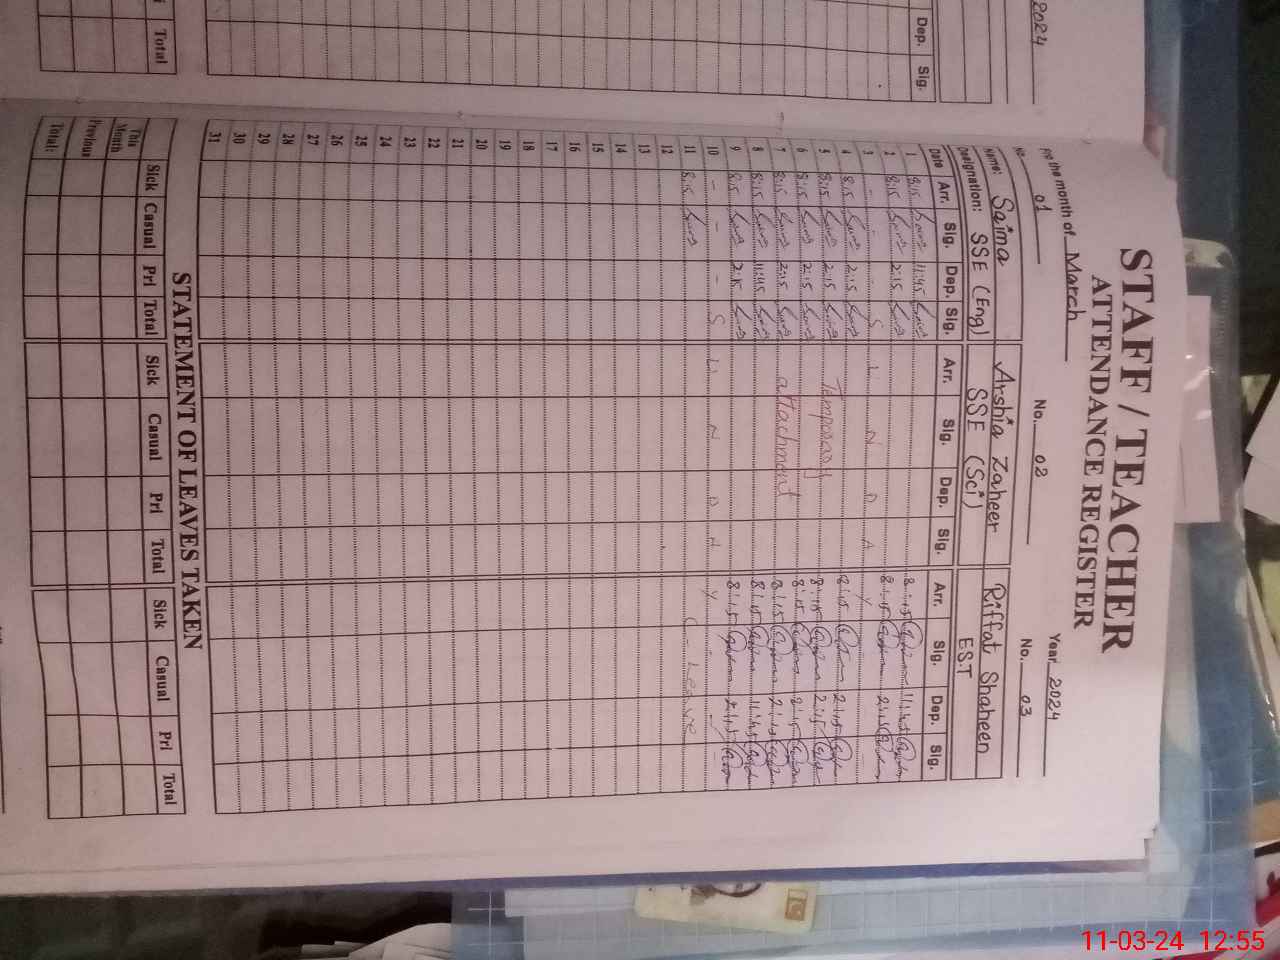 2024
Dep. Sig.
Total
STAFF / TEACHER
ATTENDANCE REGISTER
For the month of March Year 2024
No. 01 No. 02 No. 03
Name: Saima Arshia Zaheer Riffat Shaheen
Designation: SSE (Eng) SSE (Sci) E.S.T
Date Arr. Sig. Dep. Sig. Arr. Sig. Dep. Sig. Arr. Sig. Dep. Sig.
1 8:15 11:45 8:15 11:45
2 8:15 2:15 8:15 2:15
3 - - - S U N D A Y
4 8:15 2:15 8:15 2:15
5 8:15 2:15 Temporary 8:15 2:15
6 8:15 2:15 8:15 2:15
7 8:15 2:15 attachment 8:15 2:15
8 8:15 11:45 8:15 11:45
9 8:15 2:15 8:15 2:15
10 - - - S U N D A Y
11 8:15 C - Leave
12
13
14
15
16
17
18
19
20
21
22
23
24
25
26
27
28
29
30
31
STATEMENT OF LEAVES TAKEN
Sick Casual Pri Total Sick Casual Pri Total Sick Casual Pri Total
This Month
Previous
Total:
11-03-24 12:55